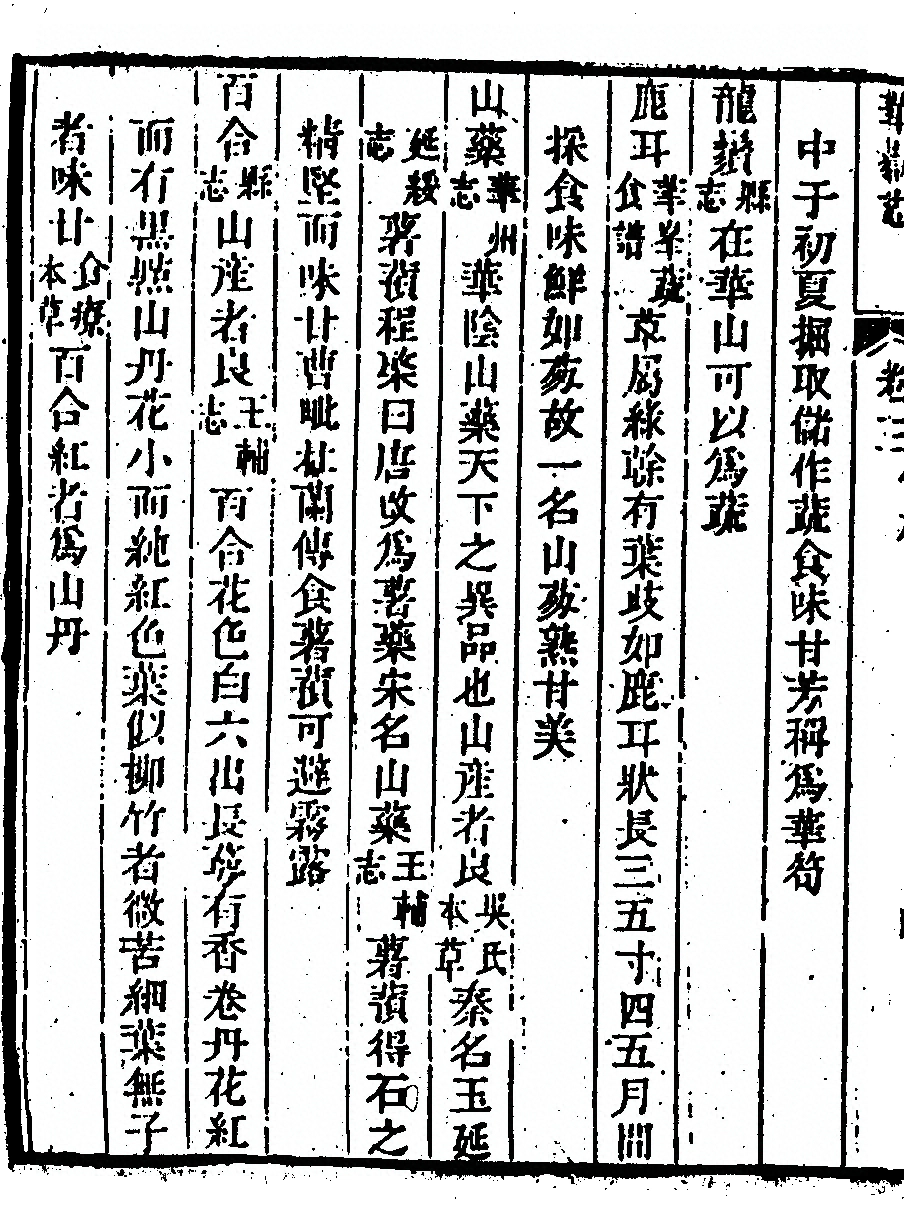 華嶽志 卷三
中于初夏掘取儲作蔬食味甘芳稱爲華筍
龍 縣志在華山可以爲蔬
鹿耳華峯蔬食譜草屬綠榦有葉歧如鹿耳狀長三五寸四五月間
採食味鮮如菽故一名山菽熟甘美
山藥華州志華陰山藥天下之異品也山產者良吳氏本草秦名玉延
延綏志薯蕷程棨曰唐改爲薯藥宋名山藥王輔志薯蕷得石之
精堅而味甘曹毗杜蘭傳食薯蕷可避霧露
百合縣志山產者良王輔志百合花色白六出長蕊有香卷丹花紅
而有黑㸃山丹花小而純紅色葉似柳竹者微苦細葉無子
者味甘食療本草百合紅者爲山丹